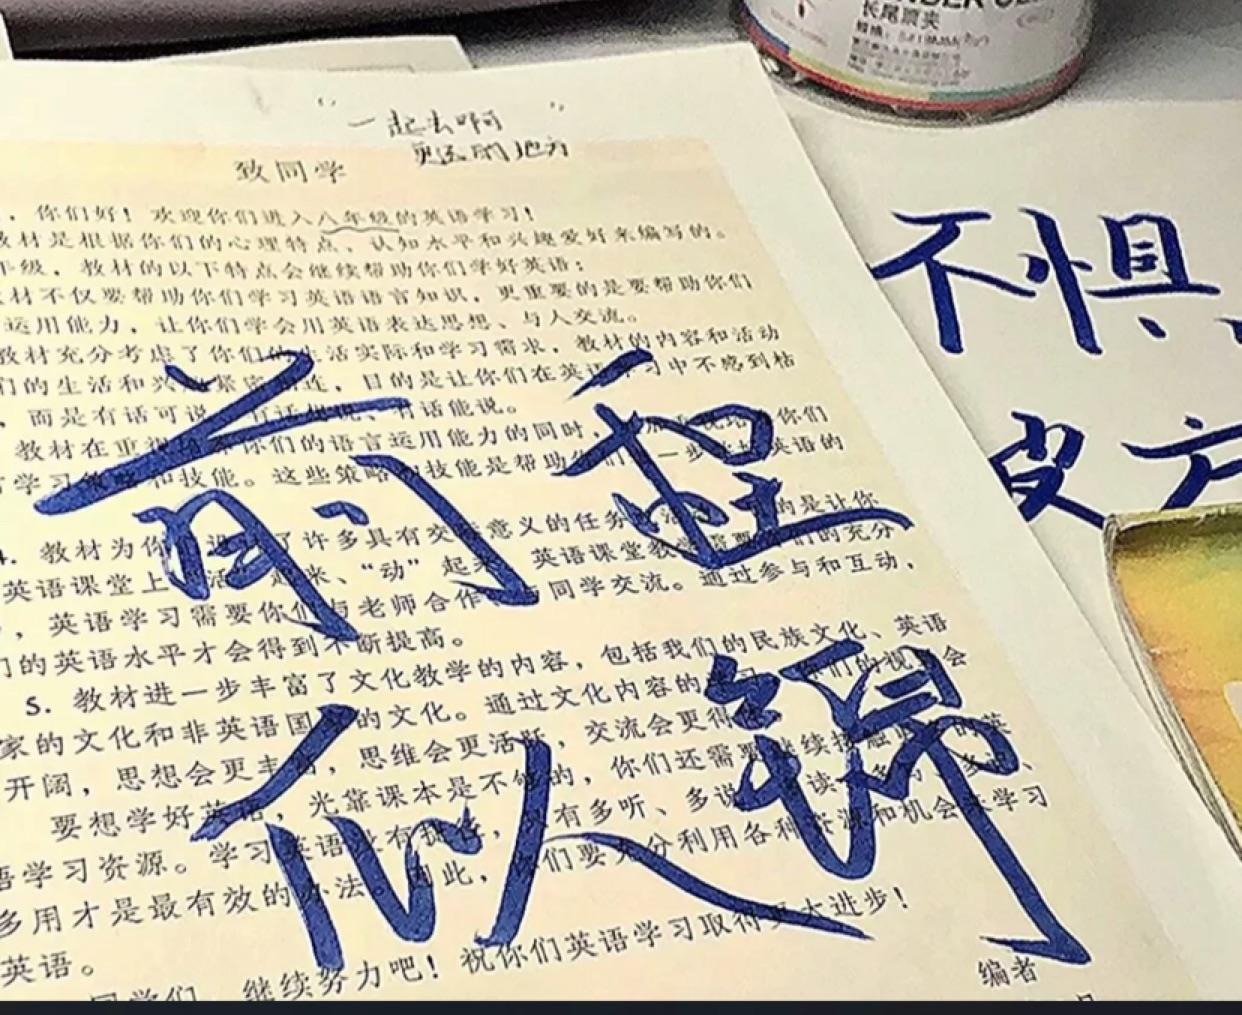 长尾票夹
“一起去啊
更远的地方”
致同学
，你们好！欢迎你们进入八年级的英语学习！
教材是根据你们的心理特点、认知水平和兴趣爱好来编写的。
年级，教材的以下特点会继续帮助你们学好英语：
材不仅要帮助你们学习英语语言知识，更重要的是要帮助你们
运用能力，让你们学会用英语表达思想、与人交流。
教材充分考虑了你们的生活实际和学习需求，教材的内容和活动
们的生活和兴趣紧密相连，目的是让你们在英语学习中不感到枯
，而是有话可说、有话想说、有话能说。
教材在重视培养你们的语言运用能力的同时，你们
学习策略和技能。这些策略和技能是帮助你们一步英语的
4. 教材为你设了许多具有交际意义的任务活的是让你
英语课堂上“活”起来、“动”起来。英语课堂教学需要你们的充分
，英语学习需要你们与老师合作，同学交流。通过参与和互动，
们的英语水平才会得到不断提高。
5. 教材进一步丰富了文化教学的内容，包括我们的民族文化、英语
家的文化和非英语国家的文化。通过文化内容的学习，你们的视野会
开阔，思想会更丰富，思维会更活跃，交流会更得体。
要想学好英语，光靠课本是不够的，你们还需要继续接触的英
语学习资源。学习英语没有捷径，只有多听、多说、多读、多写、多
多用才是最有效的办法。因此，你们要充分利用各种资源和机会来学习
英语。
同学们，继续努力吧！祝你们英语学习取得更大进步！
编者
前程
似锦
不惧
方